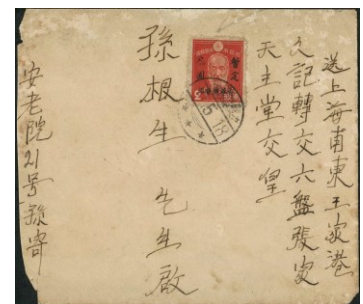 送上海南東王家港
久記轉交六盤張家
天主堂交皇
孫根生 先生啟
安老院21号孫寄
暫定